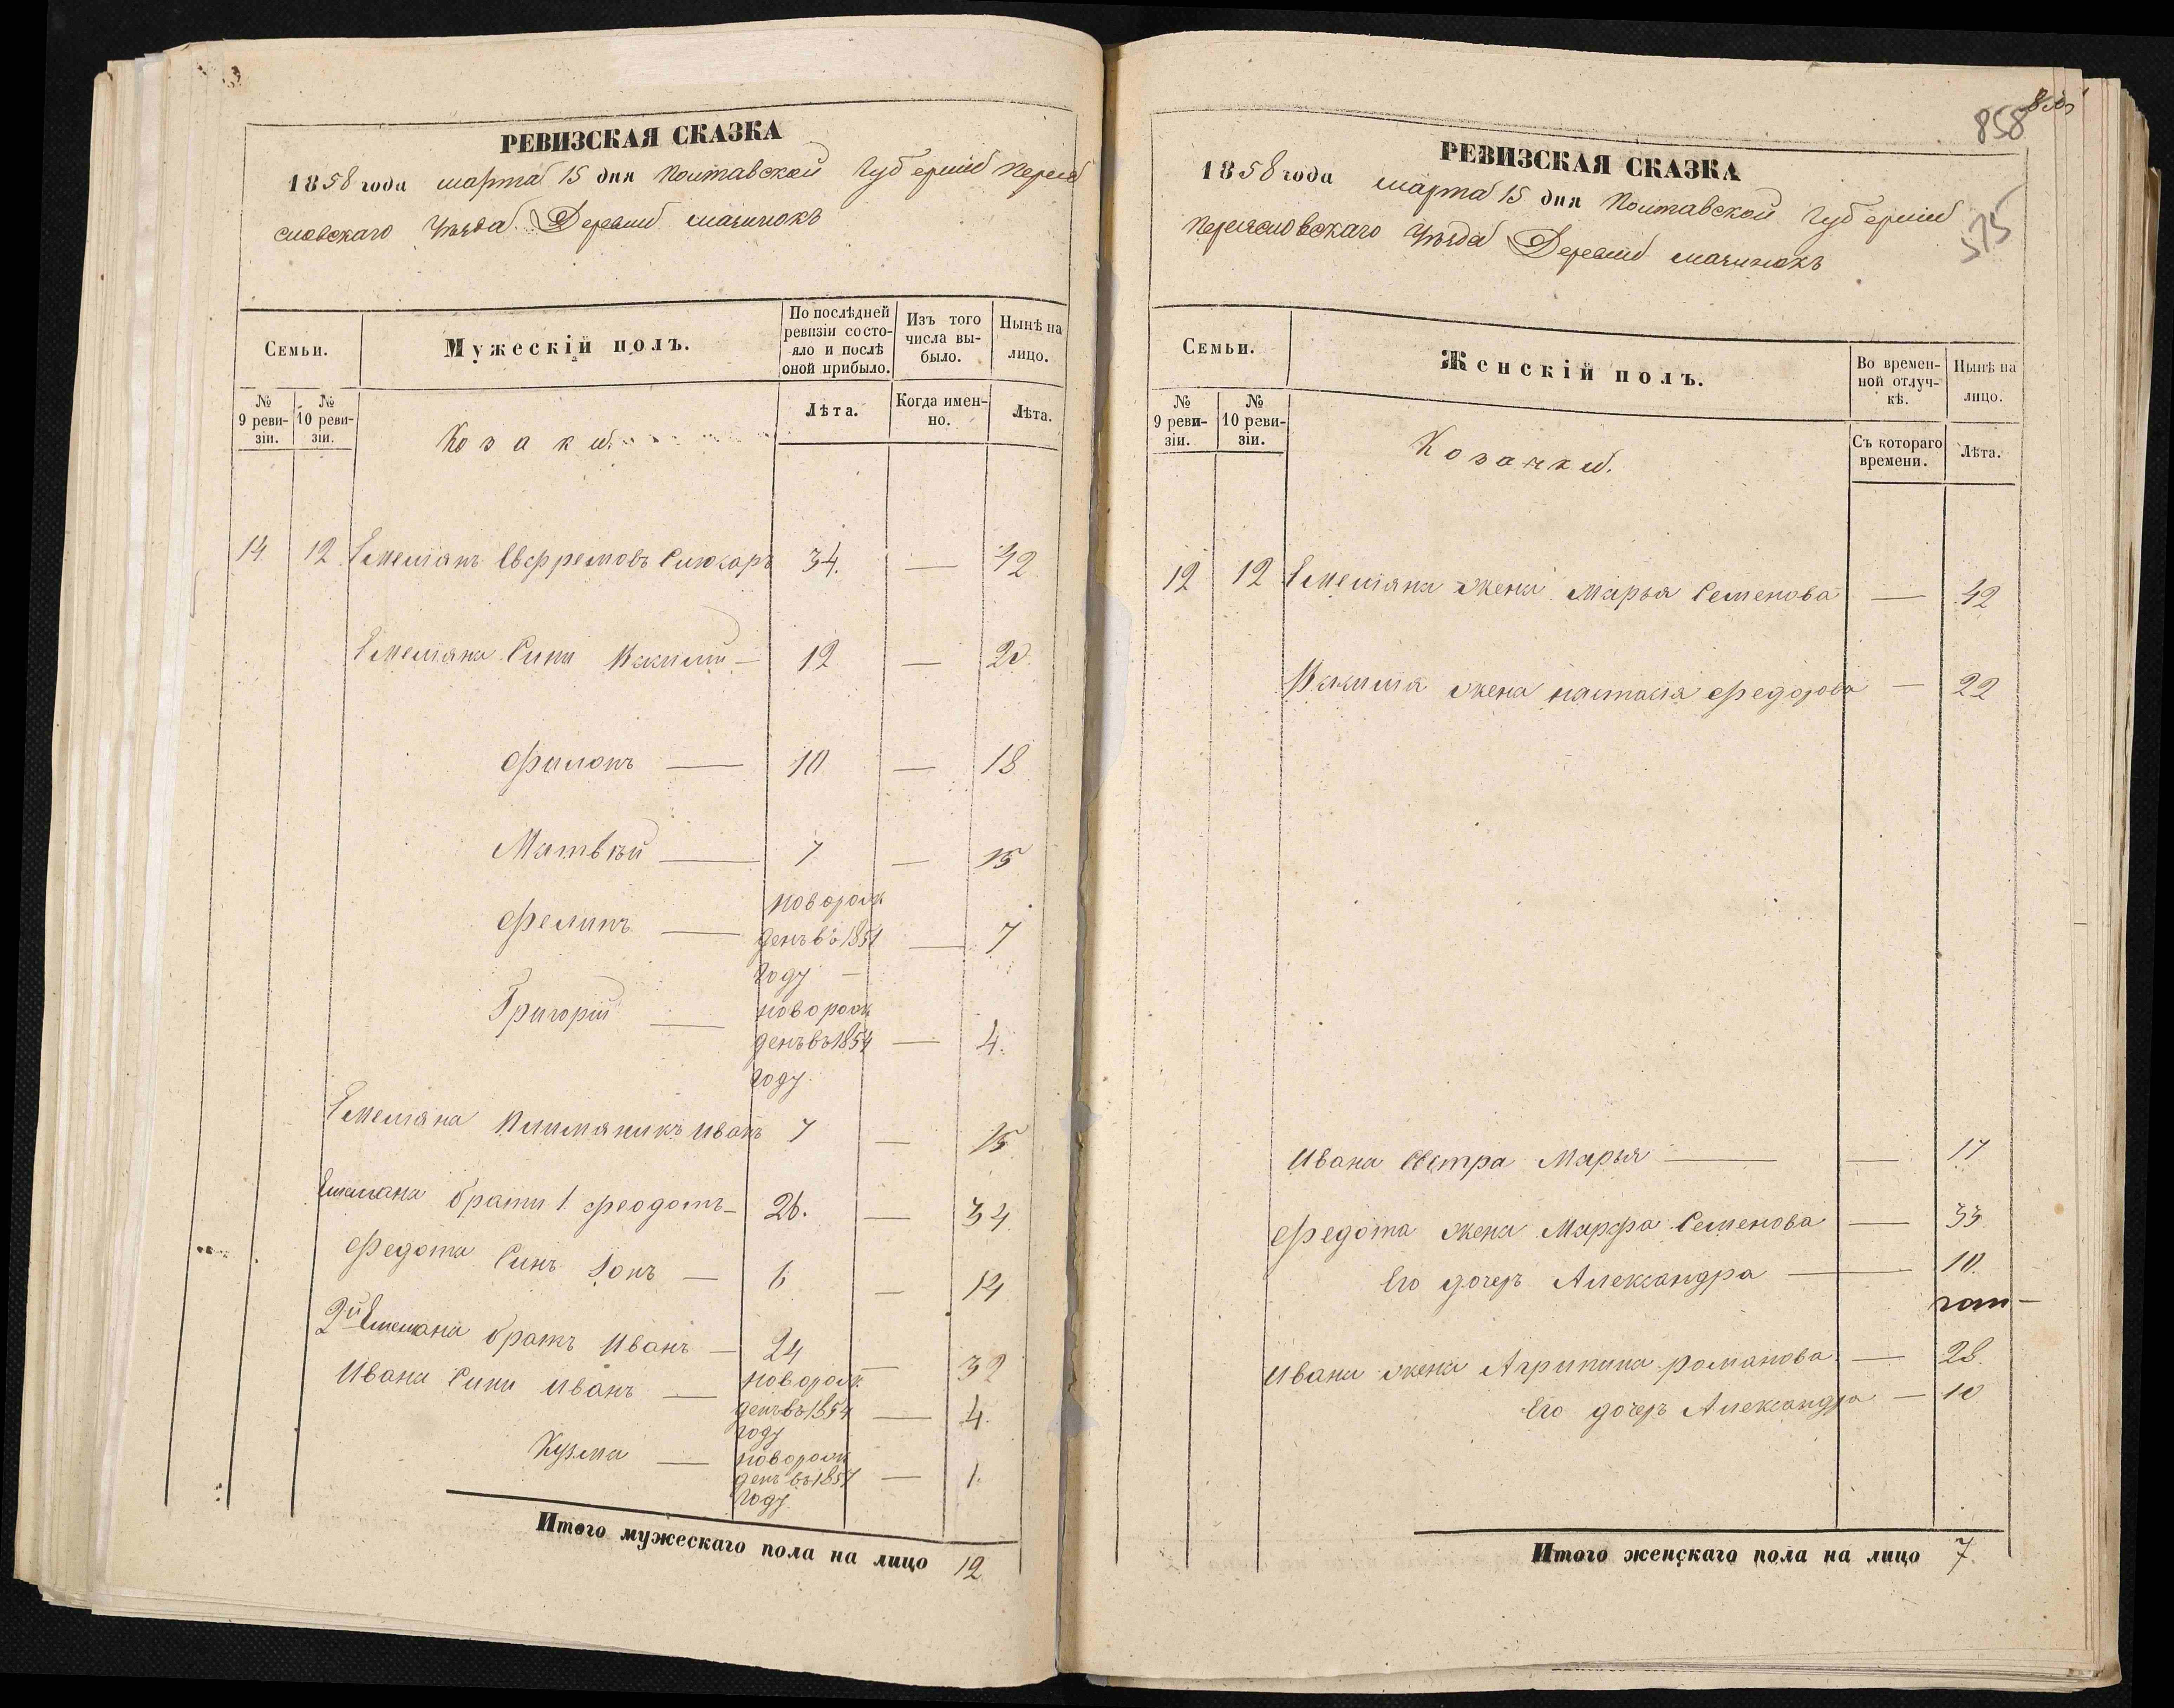 РЕВИЗСКАЯ СКАЗКА
1858 года марта 15 дня Полтавской Губернии Перея
словскаго Уѣзда Деревни
Семьи.
Мужескій полъ.
По послѣдней ревизіи состояло и послѣ оной прибыло.
Изъ того числа выбыло.
Нынѣ на лицо.
№ 9 ревизіи.
№ 10 ревизіи.
Козаки
Лѣта.
Когда именно.
Лѣта.
14 12 Емелianъ Евфремовъ 34. — 42
Емеляна Сини — 12 — 20
Филонъ — 10 — 18
Матвѣй — 7 — 15
Фелипъ — новорож
денъ въ 1851 — 7
году —
Григорій — новорож
денъ въ 1854 — 4.
году.
Емеляна племяникъ Иванъ 7 — 15
Емеляна брати 1 Феодотъ — 26. — 34.
Федота Синъ Іонъ — 6 — 14
2й Емеляна братъ Иванъ — 24 — 32
Ивана Сини Иванъ — новорож
денъ въ 1854 — 4.
году
Кузма — новорож
денъ въ 1857 — 1.
году.
Итого мужескаго пола на лицо 12
858
515
РЕВИЗСКАЯ СКАЗКА
1858 года марта 15 дня Полтавской Губерніи
Переясловскаго Уѣзда Деревни
Семьи.
Женскій полъ.
Во временной отлучкѣ.
Нынѣ на лицо.
№ 9 ревизіи.
№ 10 ревизіи.
Козачки.
Съ котораго времени.
Лѣта.
12 12 Емеляна жена Марья Семенова — 42
жена настасія Федорова — 22
Ивана Сестра Марья — — 17
Федота жена Марфа Семенова — 33
Его дочеръ Александра — 10.
Ивана жена Агрипина романова — 28.
Его дочеръ Александра — 10
Итого женскаго пола на лицо 7